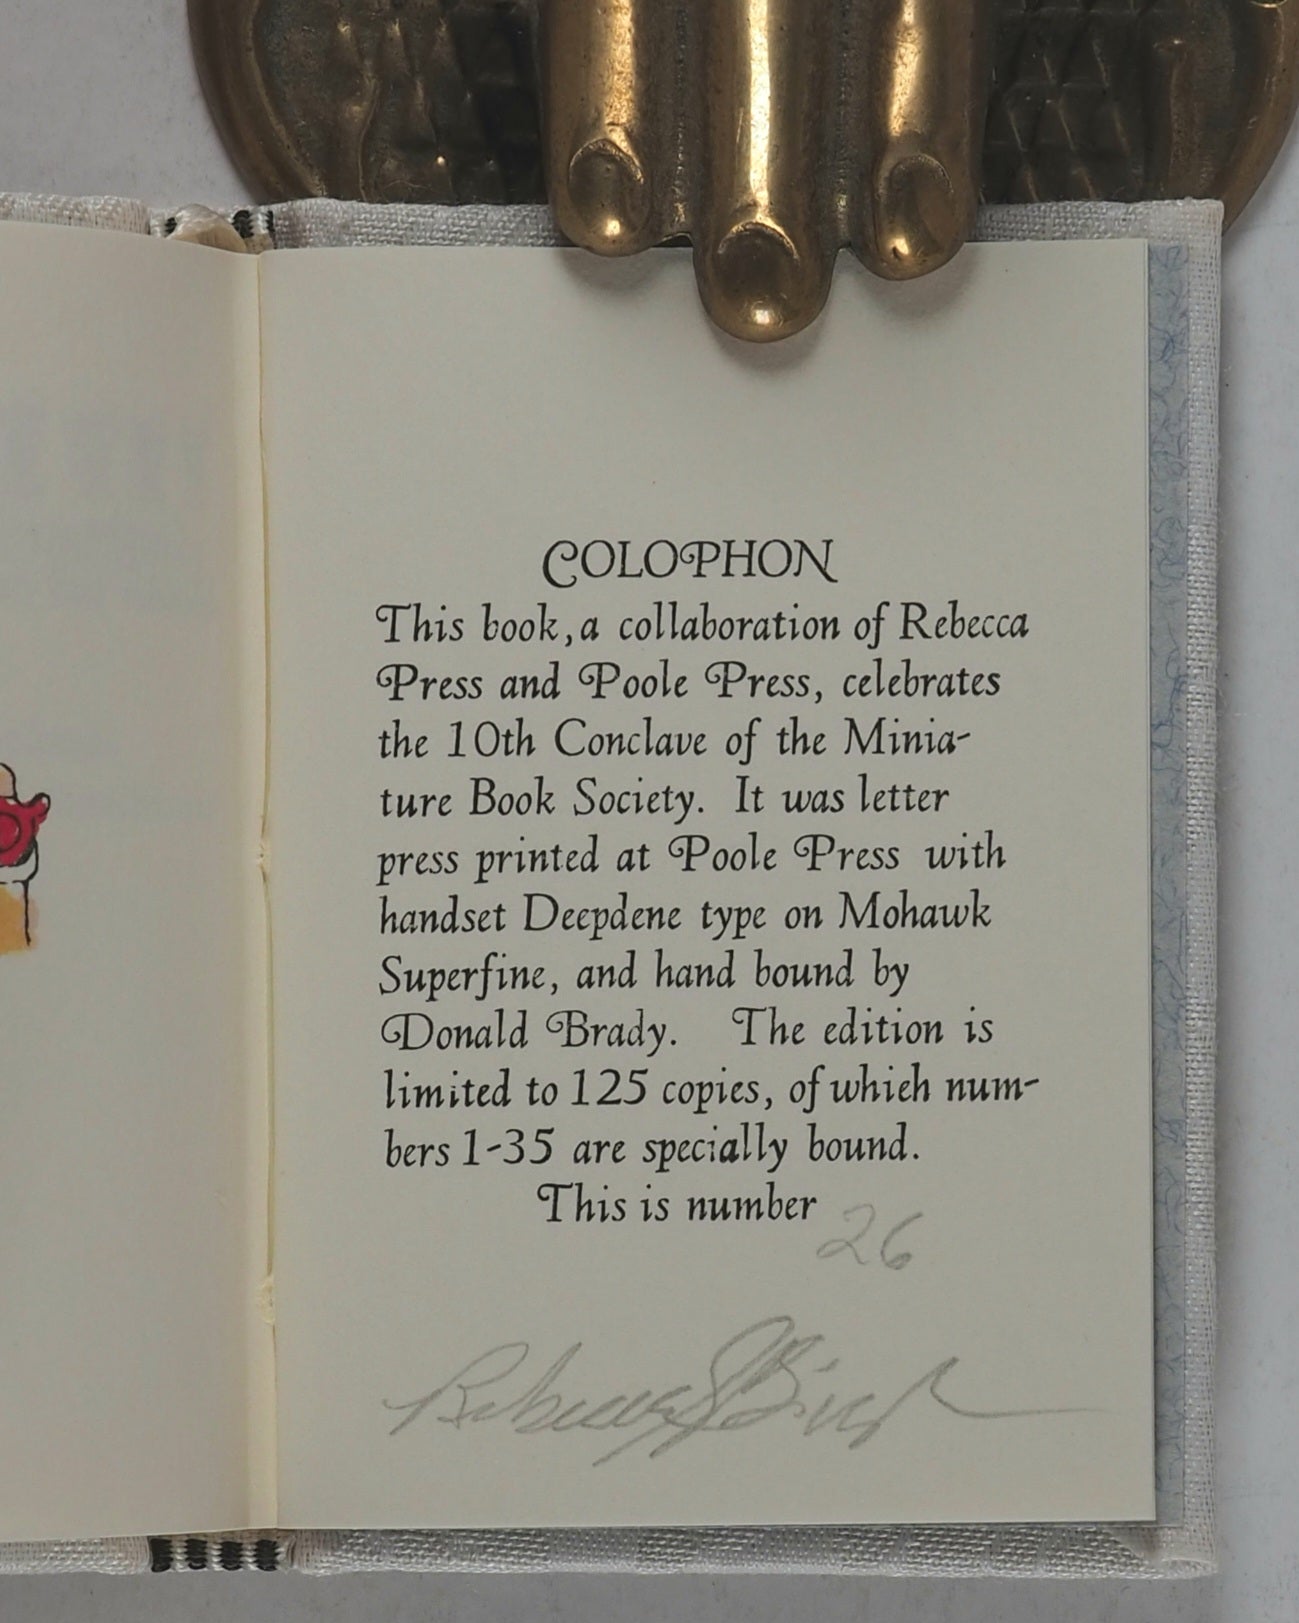 COLOPHON
This book, a collaboration of Rebecca
Press and Poole Press, celebrates
the 10th Conclave of the Minia-
ture Book Society. It was letter
press printed at Poole Press with
handset Deepdene type on Mohawk
Superfine, and hand bound by
Donald Brady. The edition is
limited to 125 copies, of whieh num-
bers 1-35 are specially bound.
This is number 26